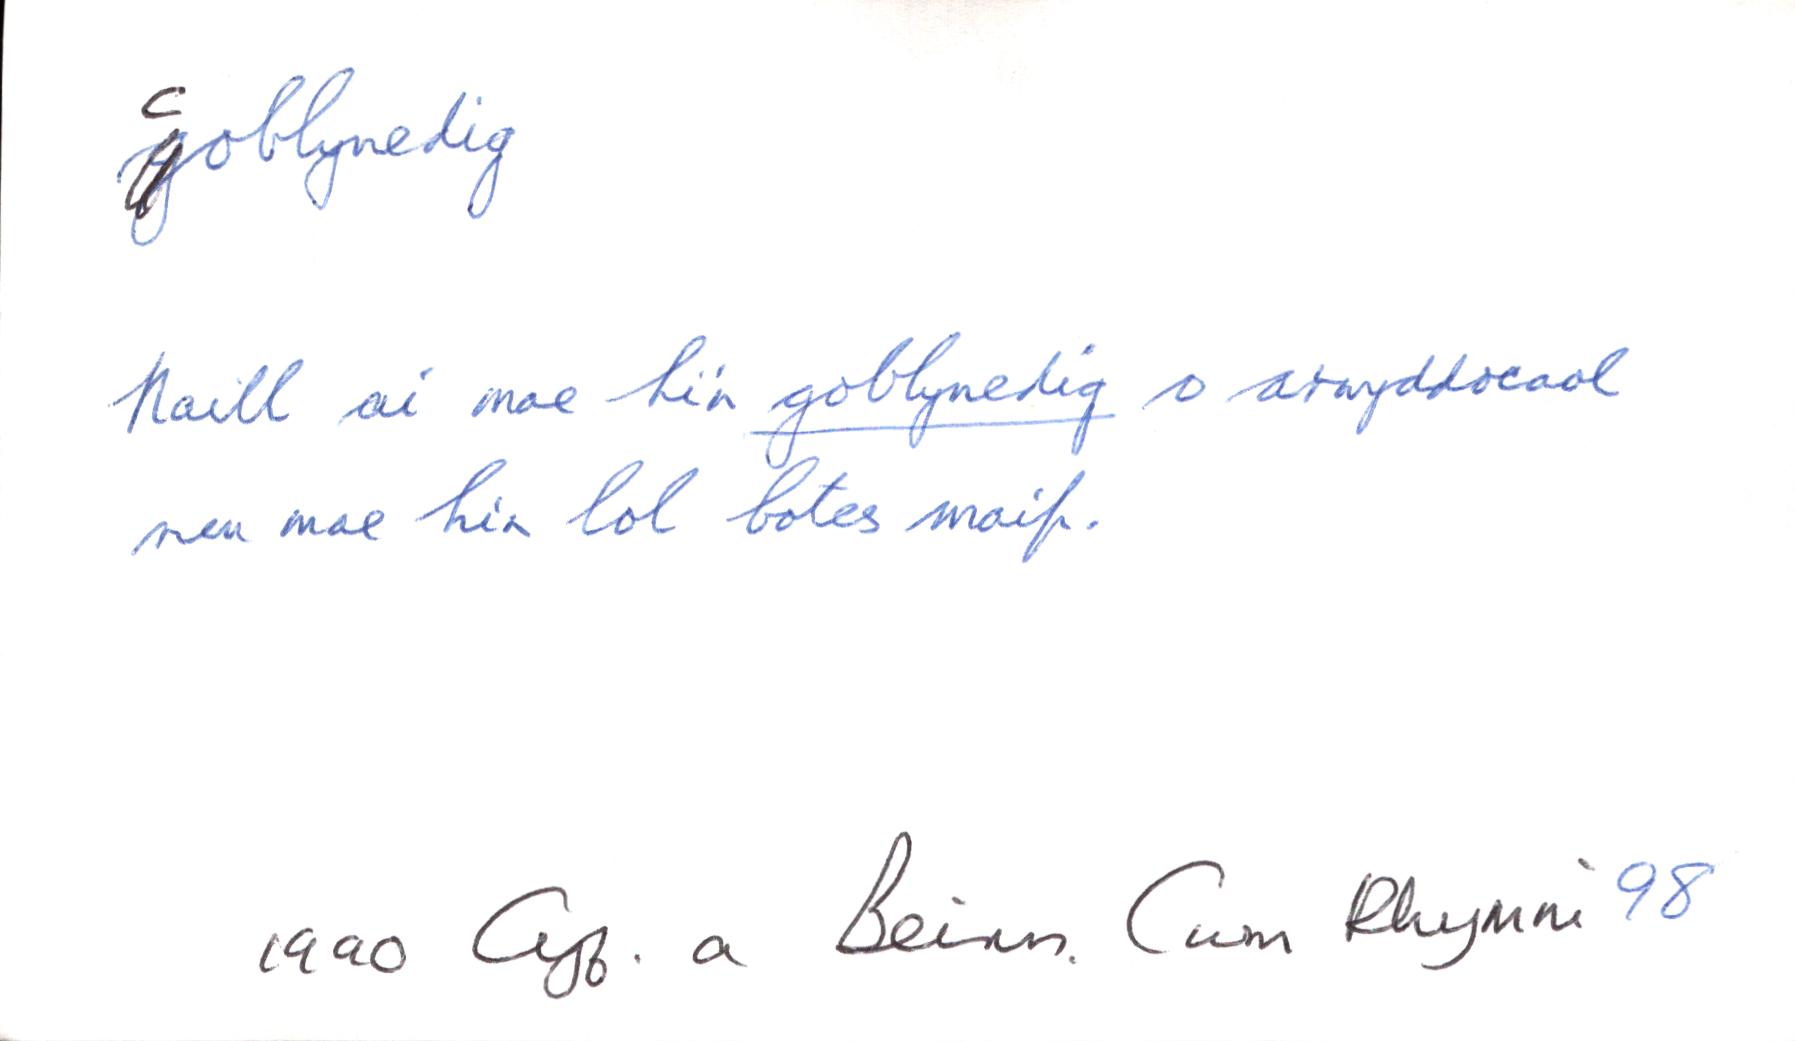 coblynedig
Naill ai mae hi'n goblynedig o arwyddocaol
neu mae hi'n lol botes maip.
1990 Cyf. a Beirn. Cwm Rhymni 98